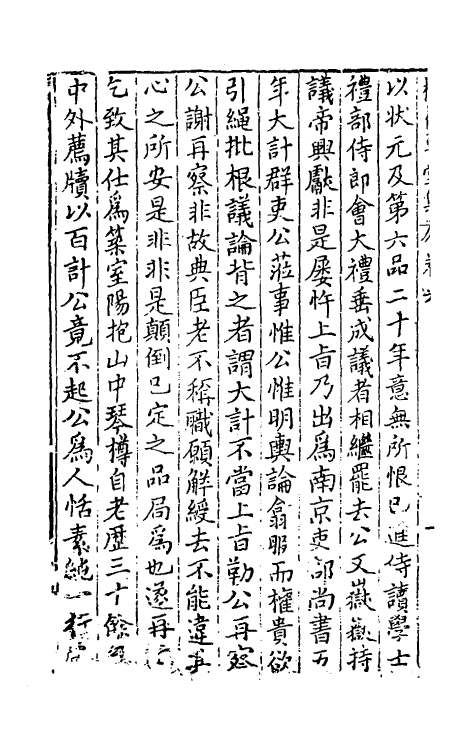 以狀元及第六品二十年意無所恨已進侍讀學士
禮部侍郎會大禮垂成議者相繼罷去公又嶽嶽持
議帝興獻非是屡忤上旨乃出爲南京吏部尚書五
年大計群吏公蒞事惟公惟明輿論翕服而權貴欲
引繩批根議論背之者謂大計不當上旨勒公再察
公謝再察非故典臣老不稱職願解綬去不能違夲
心之所安是非非是顛倒已定之品局爲也遂再
乞致其仕爲築室陽抱山中琴樽自老歷三十餘
中外薦牘以百計公竟不起公爲人恬素純一